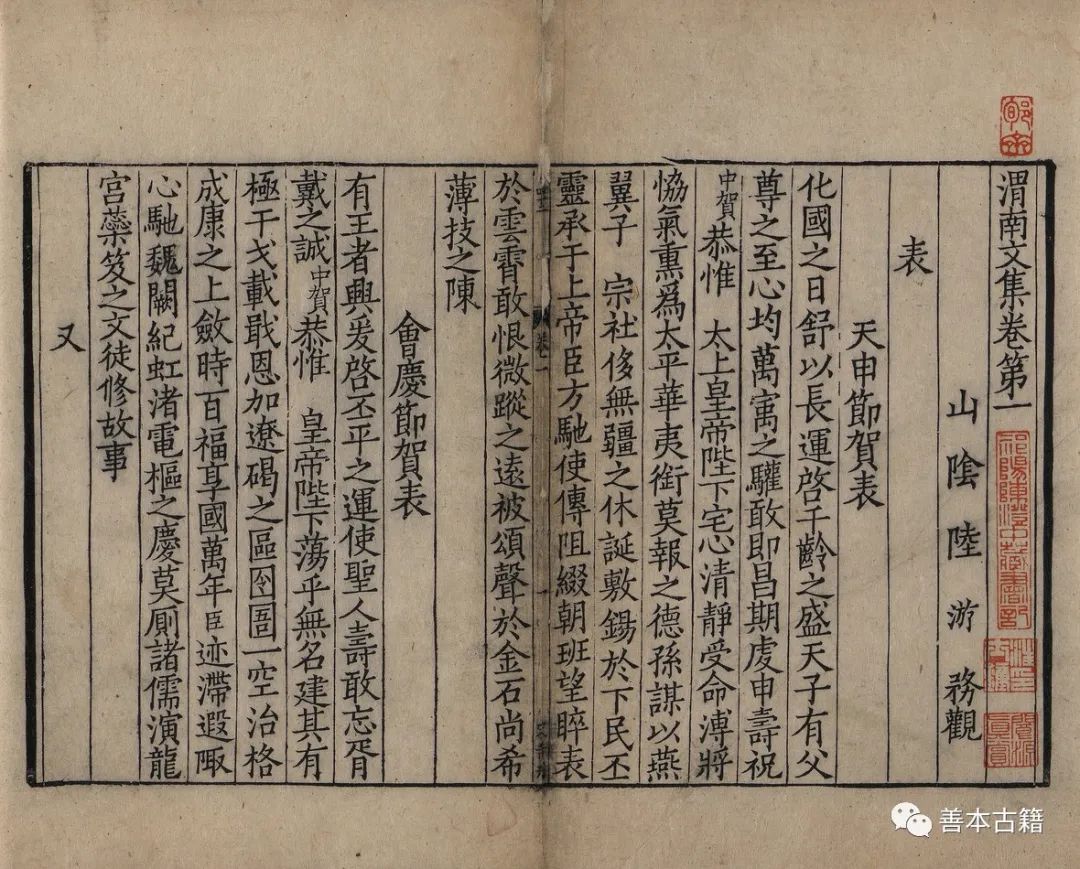 渭南文集卷第一
山陰陸游務觀
表
天申節賀表
化國之日舒以長運啓千齡之盛天子有父
尊之至心均萬㝢之驩敢即昌期虔申壽祝
中賀恭惟 太上皇帝陛下宅心清靜受命溥將
恊氣熏爲太平華夷銜莫報之德孫謀以燕
翼子 宗社侈無疆之休誕敷錫於下民丕
靈承于上帝臣方馳使傳阻綴朝班望睟表
於雲霄敢恨微蹤之遠被頌聲於金石尚希
薄技之陳
會慶節賀表
有王者興爰啓丕平之運使聖人壽敢忘胥
戴之誠中賀恭惟 皇帝陛下蕩乎無名建其有
極干戈載戢恩加遼碣之區囹圄一空治格
成康之上斂時百福享國萬年臣迹滯遐陬
心馳魏闕紀虹渚電樞之慶莫厠諸儒演龍
宮蘂笈之文徒修故事
又
卷一
一
祁陽陳澄中藏書記
善本古籍